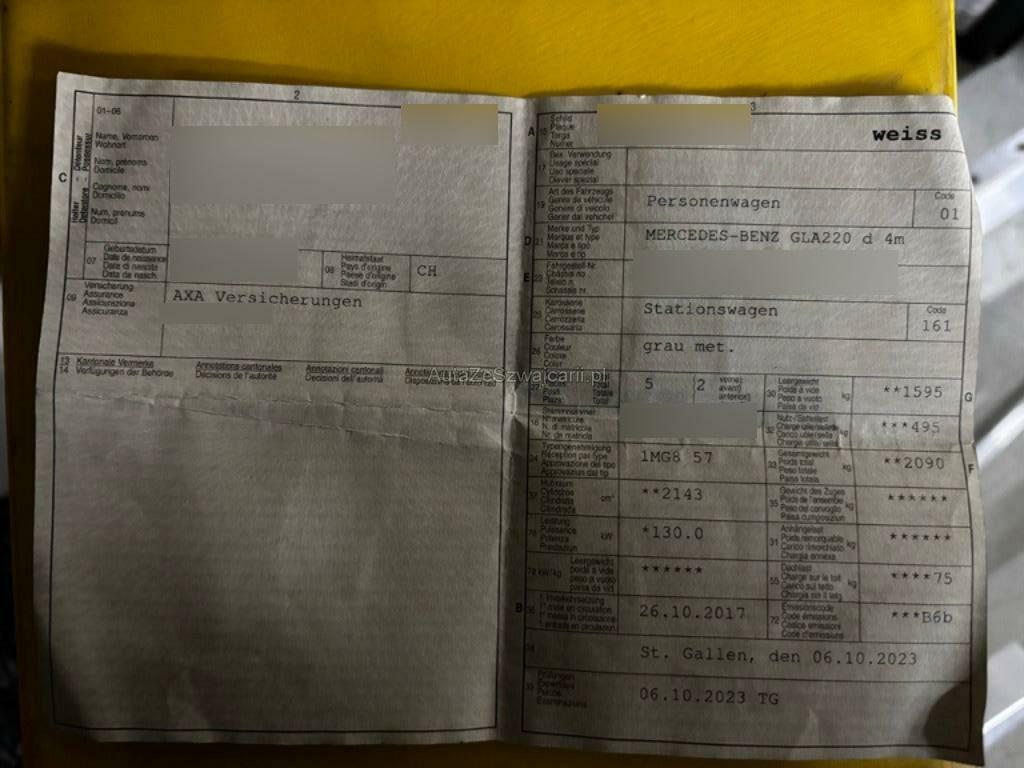 2
01-06
C
Halter - Détenteur
Detentore - Possessur
Name, Vornamen
Wohnort
Nom, prénoms
Domicile
Cognome, nomi
Domicilio
Num, prenums
Domicil
07
Geburtsdatum
Date de naissance
Data di nascita
Data da nasch.
08
Heimatstaat
Pays d'origine
Paese d'origine
Stadi d'origin
CH
09
Versicherung
Assurance
Assicurazione
Assicuranza
AXA Versicherungen
13 Kantonale Vermerke
14 Verfügungen der Behörde
Annotations cantonales
Décisions de l'autorité
Annotazioni cantonali
Decisioni dell'autorità
AutaZeSzwajcarii.pl
3
A
Schild
Plaque
Targa
Numer
weiss
17
Bes. Verwendung
Usage spécial
Uso speciale
Diever spezial
19
Art des Fahrzeugs
Genre de véhicule
Genere di veicolo
Gener dal vehichel
Personenwagen
Code
01
D
21
Marke und Typ
Marque et type
Marca e tipo
Marca e tip
MERCEDES-BENZ GLA220 d 4m
E
23
Fahrgestell-Nr.
Châssis no
Telaio n.
Schassis nr.
25
Karosserie
Carrosserie
Carrozzeria
Carossaria
Stationswagen
Code
161
26
Farbe
Couleur
Colore
Colur
grau met.
5
2
vorne)
avant)
anteriori)
30
Leergewicht
Poids à vide
Peso a vuoto
Paisa da vid
kg
**1595
G
18
Stammnummer
N° matricule
N. di matricola
Nr. da matricla
32
Nutz-/Sattellast
Charge utile/sellette
Carico utile/sella
Chargia utila/sella
kg
***495
24
Typengenehmigung
Réception par type
Approvazione del tipo
Approvaziun dal tip
1MG8 57
33
Gesamtgewicht
Poids total
Peso totale
Paisa totala
kg
**2090
F
37
Hubraum
Cylindrée
Cilindrata
Cilindrada
cm³
**2143
35
Gewicht des Zuges
Poids de l'ensemble
Peso del convoglio
Paisa cumposiziun
kg
******
76
Leistung
Puissance
Potenza
Prestaziun
kW
*130.0
31
Anhängelast
Poids remorquable
Carico rimorchiato
Chargia annexa
kg
******
78 kW/kg
Leergewicht
poids à vide
peso a vuoto
paisa da vid
******
55
Dachlast
Charge sur le toit
Carico sul tetto
Chargia sin il tetg
kg
****75
B
36
1. Inverkehrsetzung
1re mise en circulation
1a messa in circolazione
1. entrada en circulaziun
26.10.2017
72
Emissionscode
Code émissions
Codice emissioni
Code d'emissiuns
***B6b
38
St. Gallen, den 06.10.2023
39
Prüfungen
Expertises
Perizie
Examinaziuns
06.10.2023 TG